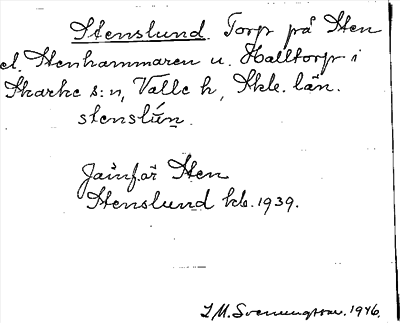 Stenslund. Torp på Sten
el. Stenhammaren u. Halltorp i
Skarke s:n, Valle h, Skbl. län.
stenslún.
Jämför Sten
Stenslund kb. 1939.
I.M. Svenungsson. 1946.